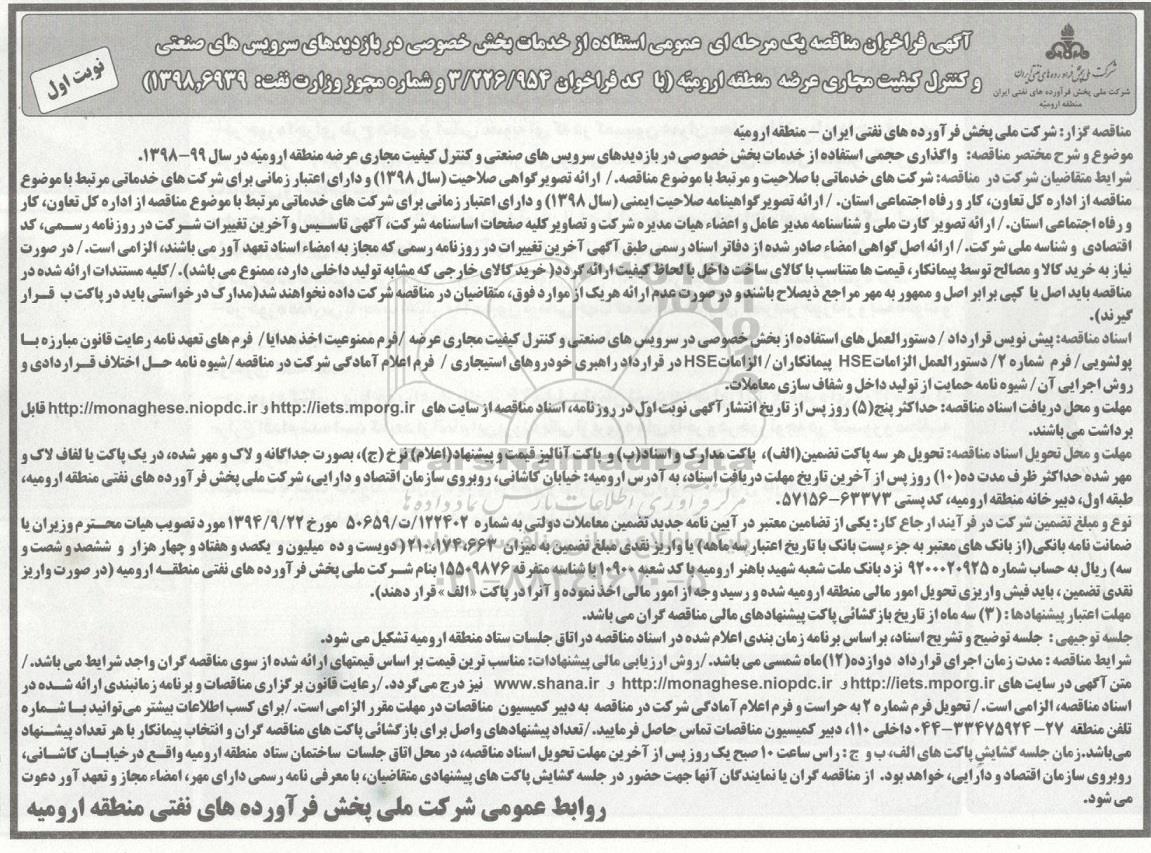 آگهی فراخوان مناقصه یک مرحله ای عمومی استفاده از خدمات بخش خصوصی در بازدیدهای سرویس های صنعتی
و کنترل کیفیت مجاری عرضه منطقه ارومیّه (با کد فراخوان ۳/۲۲۶/۹۵۴ و شماره مجوز وزارت نفت: ۱۳۹۸,۶۹۳۹)
نوبت اول
شرکت ملی پخش فرآورده های نفتی ایران
شرکت ملی پخش فرآورده های نفتی ایران
منطقه ارومیّه
مناقصه گزار: شرکت ملی پخش فرآورده های نفتی ایران – منطقه ارومیّه
موضوع و شرح مختصر مناقصه: واگذاری حجمی استفاده از خدمات بخش خصوصی در بازدیدهای سرویس های صنعتی و کنترل کیفیت مجاری عرضه منطقه ارومیّه در سال ۹۹–۱۳۹۸.
شرایط متقاضیان شرکت در مناقصه: شرکت های خدماتی با صلاحیت و مرتبط با موضوع مناقصه. / ارائه تصویر گواهی صلاحیت (سال ۱۳۹۸) و دارای اعتبار زمانی برای شرکت های خدماتی مرتبط با موضوع
مناقصه از اداره کل تعاون، کار و رفاه اجتماعی استان. / ارائه تصویر گواهینامه صلاحیت ایمنی (سال ۱۳۹۸) و دارای اعتبار زمانی برای شرکت های خدماتی مرتبط با موضوع مناقصه از اداره کل تعاون، کار
و رفاه اجتماعی استان. / ارائه تصویر کارت ملی و شناسنامه مدیر عامل و اعضاء هیات مدیره شرکت و تصاویر کلیه صفحات اساسنامه شرکت، آگهی تاسیس و آخرین تغییرات شرکت در روزنامه رسمی، کد
اقتصادی و شناسه ملی شرکت. / ارائه اصل گواهی امضاء صادر شده از دفاتر اسناد رسمی طبق آگهی آخرین تغییرات در روزنامه رسمی که مجاز به امضاء اسناد تعهد آور می باشند، الزامی است. / در صورت
نیاز به خرید کالا و مصالح توسط پیمانکار، قیمت ها متناسب با کالای ساخت داخل با لحاظ کیفیت ارائه گردد( خرید کالای خارجی که مشابه تولید داخلی دارد، ممنوع می باشد). /کلیه مستندات ارائه شده در
مناقصه باید اصل یا کپی برابر اصل و ممهور به مهر مراجع ذیصلاح باشند و در صورت عدم ارائه هریک از موارد فوق، متقاضیان در مناقصه شرکت داده نخواهند شد(مدارک درخواستی باید در پاکت ب قرار
گیرند).
اسناد مناقصه: پیش نویس قرارداد / دستورالعمل های استفاده از بخش خصوصی در سرویس های صنعتی و کنترل کیفیت مجاری عرضه /فرم ممنوعیت اخذ هدایا/ فرم های تعهد نامه رعایت قانون مبارزه با
پولشویی / فرم شماره ۲/ دستورالعمل الزامات HSE پیمانکاران / الزامات HSE در قرارداد راهبری خودروهای استیجاری / فرم اعلام آمادگی شرکت در مناقصه /شیوه نامه حل اختلاف قراردادی و
روش اجرایی آن / شیوه نامه حمایت از تولید داخل و شفاف سازی معاملات.
مهلت و محل دریافت اسناد مناقصه: حداکثر پنج(۵) روز پس از تاریخ انتشار آگهی نوبت اول در روزنامه، اسناد مناقصه از سایت های http://iets.mporg.ir و http://monaghese.niopdc.ir قابل
برداشت می باشند.
مهلت و محل تحویل اسناد مناقصه: تحویل هر سه پاکت تضمین(الف)، پاکت مدارک و اسناد(ب) و پاکت آنالیز قیمت و پیشنهاد(اعلام) نرخ (ج)، بصورت جداگانه و لاک و مهر شده، در یک پاکت یا لفاف لاک و
مهر شده حداکثر ظرف مدت ده(۱۰) روز پس از آخرین تاریخ مهلت دریافت اسناد، به آدرس ارومیه: خیابان کاشانی، روبروی سازمان اقتصاد و دارایی، شرکت ملی پخش فرآورده های نفتی منطقه ارومیه،
طبقه اول، دبیرخانه منطقه ارومیه، کد پستی ۶۳۳۷۳–۵۷۱۵۶.
نوع و مبلغ تضمین شرکت در فرآیند ارجاع کار: یکی از تضامین معتبر در آیین نامه جدید تضمین معاملات دولتی به شماره ۱۲۲۴۰۲/ت/۵۰۶۵۹ مورخ ۱۳۹۴/۹/۲۲ مورد تصویب هیات محترم وزیران یا
ضمانت نامه بانکی(از بانک های معتبر به جزء پست بانک با تاریخ اعتبار سه ماهه) یا واریز نقدی مبلغ تضمین به میزان ۲۱۰،۱۷۴،۶۶۳(دویست و ده میلیون و یکصد و هفتاد و چهار هزار و ششصد و شصت و
سه) ریال به حساب شماره ۹۲۰۰۰۲۰۹۲۵ نزد بانک ملت شعبه شهید باهنر ارومیه با کد شعبه ۱۰۹۰۰ با شناسه متفرقه ۱۵۵۰۹۸۷۶ بنام شرکت ملی پخش فرآورده های نفتی منطقه ارومیه (در صورت واریز
نقدی تضمین ، باید فیش واریزی تحویل امور مالی منطقه ارومیه شده و رسید وجه از امور مالی اخذ نموده و آنرا در پاکت «الف» قرار دهند).
مهلت اعتبار پیشنهادها : (۳) سه ماه از تاریخ بازگشائی پاکت پیشنهادهای مالی مناقصه گران می باشد.
جلسه توجیهی : جلسه توضیح و تشریح اسناد، براساس برنامه زمان بندی اعلام شده در اسناد مناقصه در اتاق جلسات ستاد منطقه ارومیه تشکیل می شود.
شرایط مناقصه : مدت زمان اجرای قرارداد دوازده(۱۲)ماه شمسی می باشد. /روش ارزیابی مالی پیشنهادات: مناسب ترین قیمت بر اساس قیمتهای ارائه شده از سوی مناقصه گران واجد شرایط می باشد. /
متن آگهی در سایت های http://iets.mporg.ir و http://monaghese.niopdc.ir و www.shana.ir نیز درج می‌گردد. /رعایت قانون برگزاری مناقصات و برنامه زمانبندی ارائه شده در
اسناد مناقصه، الزامی است. / تحویل فرم شماره ۲ به حراست و فرم اعلام آمادگی شرکت در مناقصه به دبیر کمیسیون مناقصات در مهلت مقرر الزامی است. /برای کسب اطلاعات بیشتر می‌توانید با شماره
تلفن منطقه ۲۷–۳۳۴۷۵۹۲۴–۰۴۴ داخلی ۱۱۰، دبیر کمیسیون مناقصات تماس حاصل فرمایید. /تعداد پیشنهادهای واصل برای بازگشائی پاکت های مناقصه گران و انتخاب پیمانکار با هر تعداد پیشنهاد
می‌باشد.زمان جلسه گشایش پاکت های الف، ب و ج : راس ساعت ۱۰ صبح یک روز پس از آخرین مهلت تحویل اسناد مناقصه، در محل اتاق جلسات ساختمان ستاد منطقه ارومیه واقع در خیابان کاشانی،
روبروی سازمان اقتصاد و دارایی، خواهد بود. از مناقصه گران یا نمایندگان آنها جهت حضور در جلسه گشایش پاکت های پیشنهادی متقاضیان، با معرفی نامه رسمی دارای مهر، امضاء مجاز و تعهد آور دعوت
می شود.
روابط عمومی شرکت ملی پخش فرآورده های نفتی منطقه ارومیه
ParsNamadData